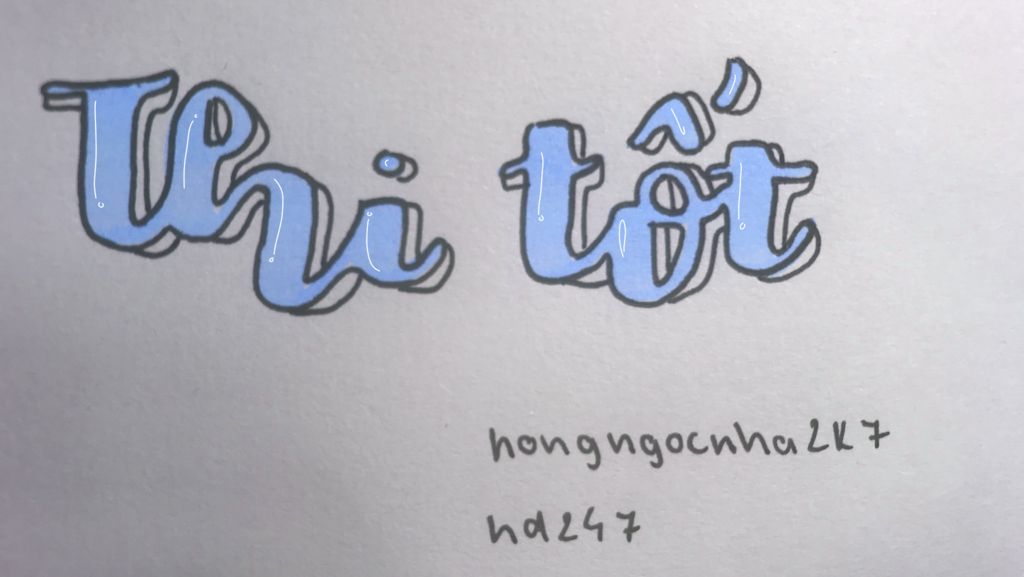 thi tốt
hongngocnha2k7
hd247